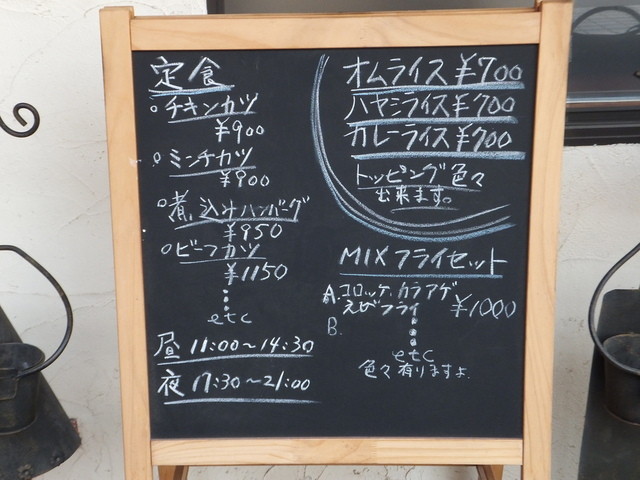 定食
○チキンカツ
¥900
○ミンチカツ
¥900
○煮込みハンバーグ
¥950
○ビーフカツ
¥1150
⋮
etc
昼 11:00~14:30
夜 17:30~21:00
オムライス ¥700
ハヤシライス ¥700
カレーライス ¥700
トッピング色々
出来ます。
MIXフライセット
A.コロッケ、カラアゲ
えびフライ ¥1000
B.
⋮
etc
色々有りますよ.